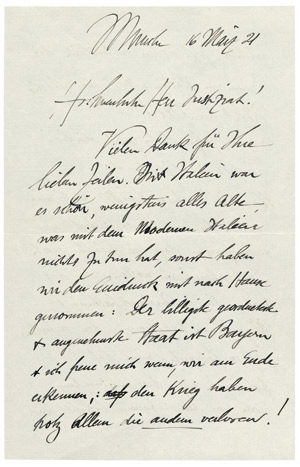 München 16 März 21
Herr Justizrat!
Vielen Dank für Ihre
lieben Zeilen. In Italien war
es schön, wenigstens alles Alte
was mit dem Modernen Italien
nichts zu tun hat, sonst haben
wir den Eindruck mit nach Hause
genommen: Der billigste geordnetste
& angenehmste Staat ist Bayern
& ich freue mich wenn wir am Ende
erkennen, : den Krieg haben
trotz Allem die andern verloren!